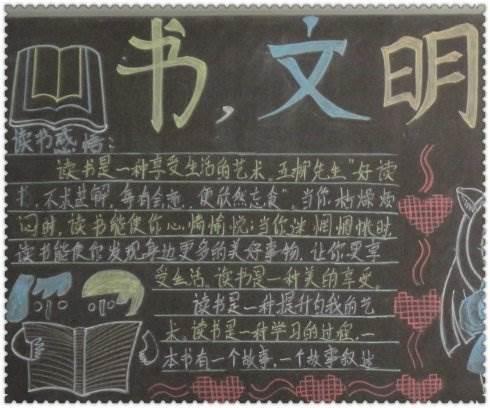 书,文明
读书感悟:
读书是一种享受生活的艺术。五柳先生"好读
书,不求甚解,每有会意,便欣然忘食"。当你枯燥烦
闷时,读书能使你心情愉悦;当你迷惘惆怅时,
读书能使你发现身边更多的美好事物,让你更享
受生活。读书是一种美的享受。
读书是一种提升自我的艺
术。读书是一种学习的过程。一
本书有一个故事,一个故事叙述